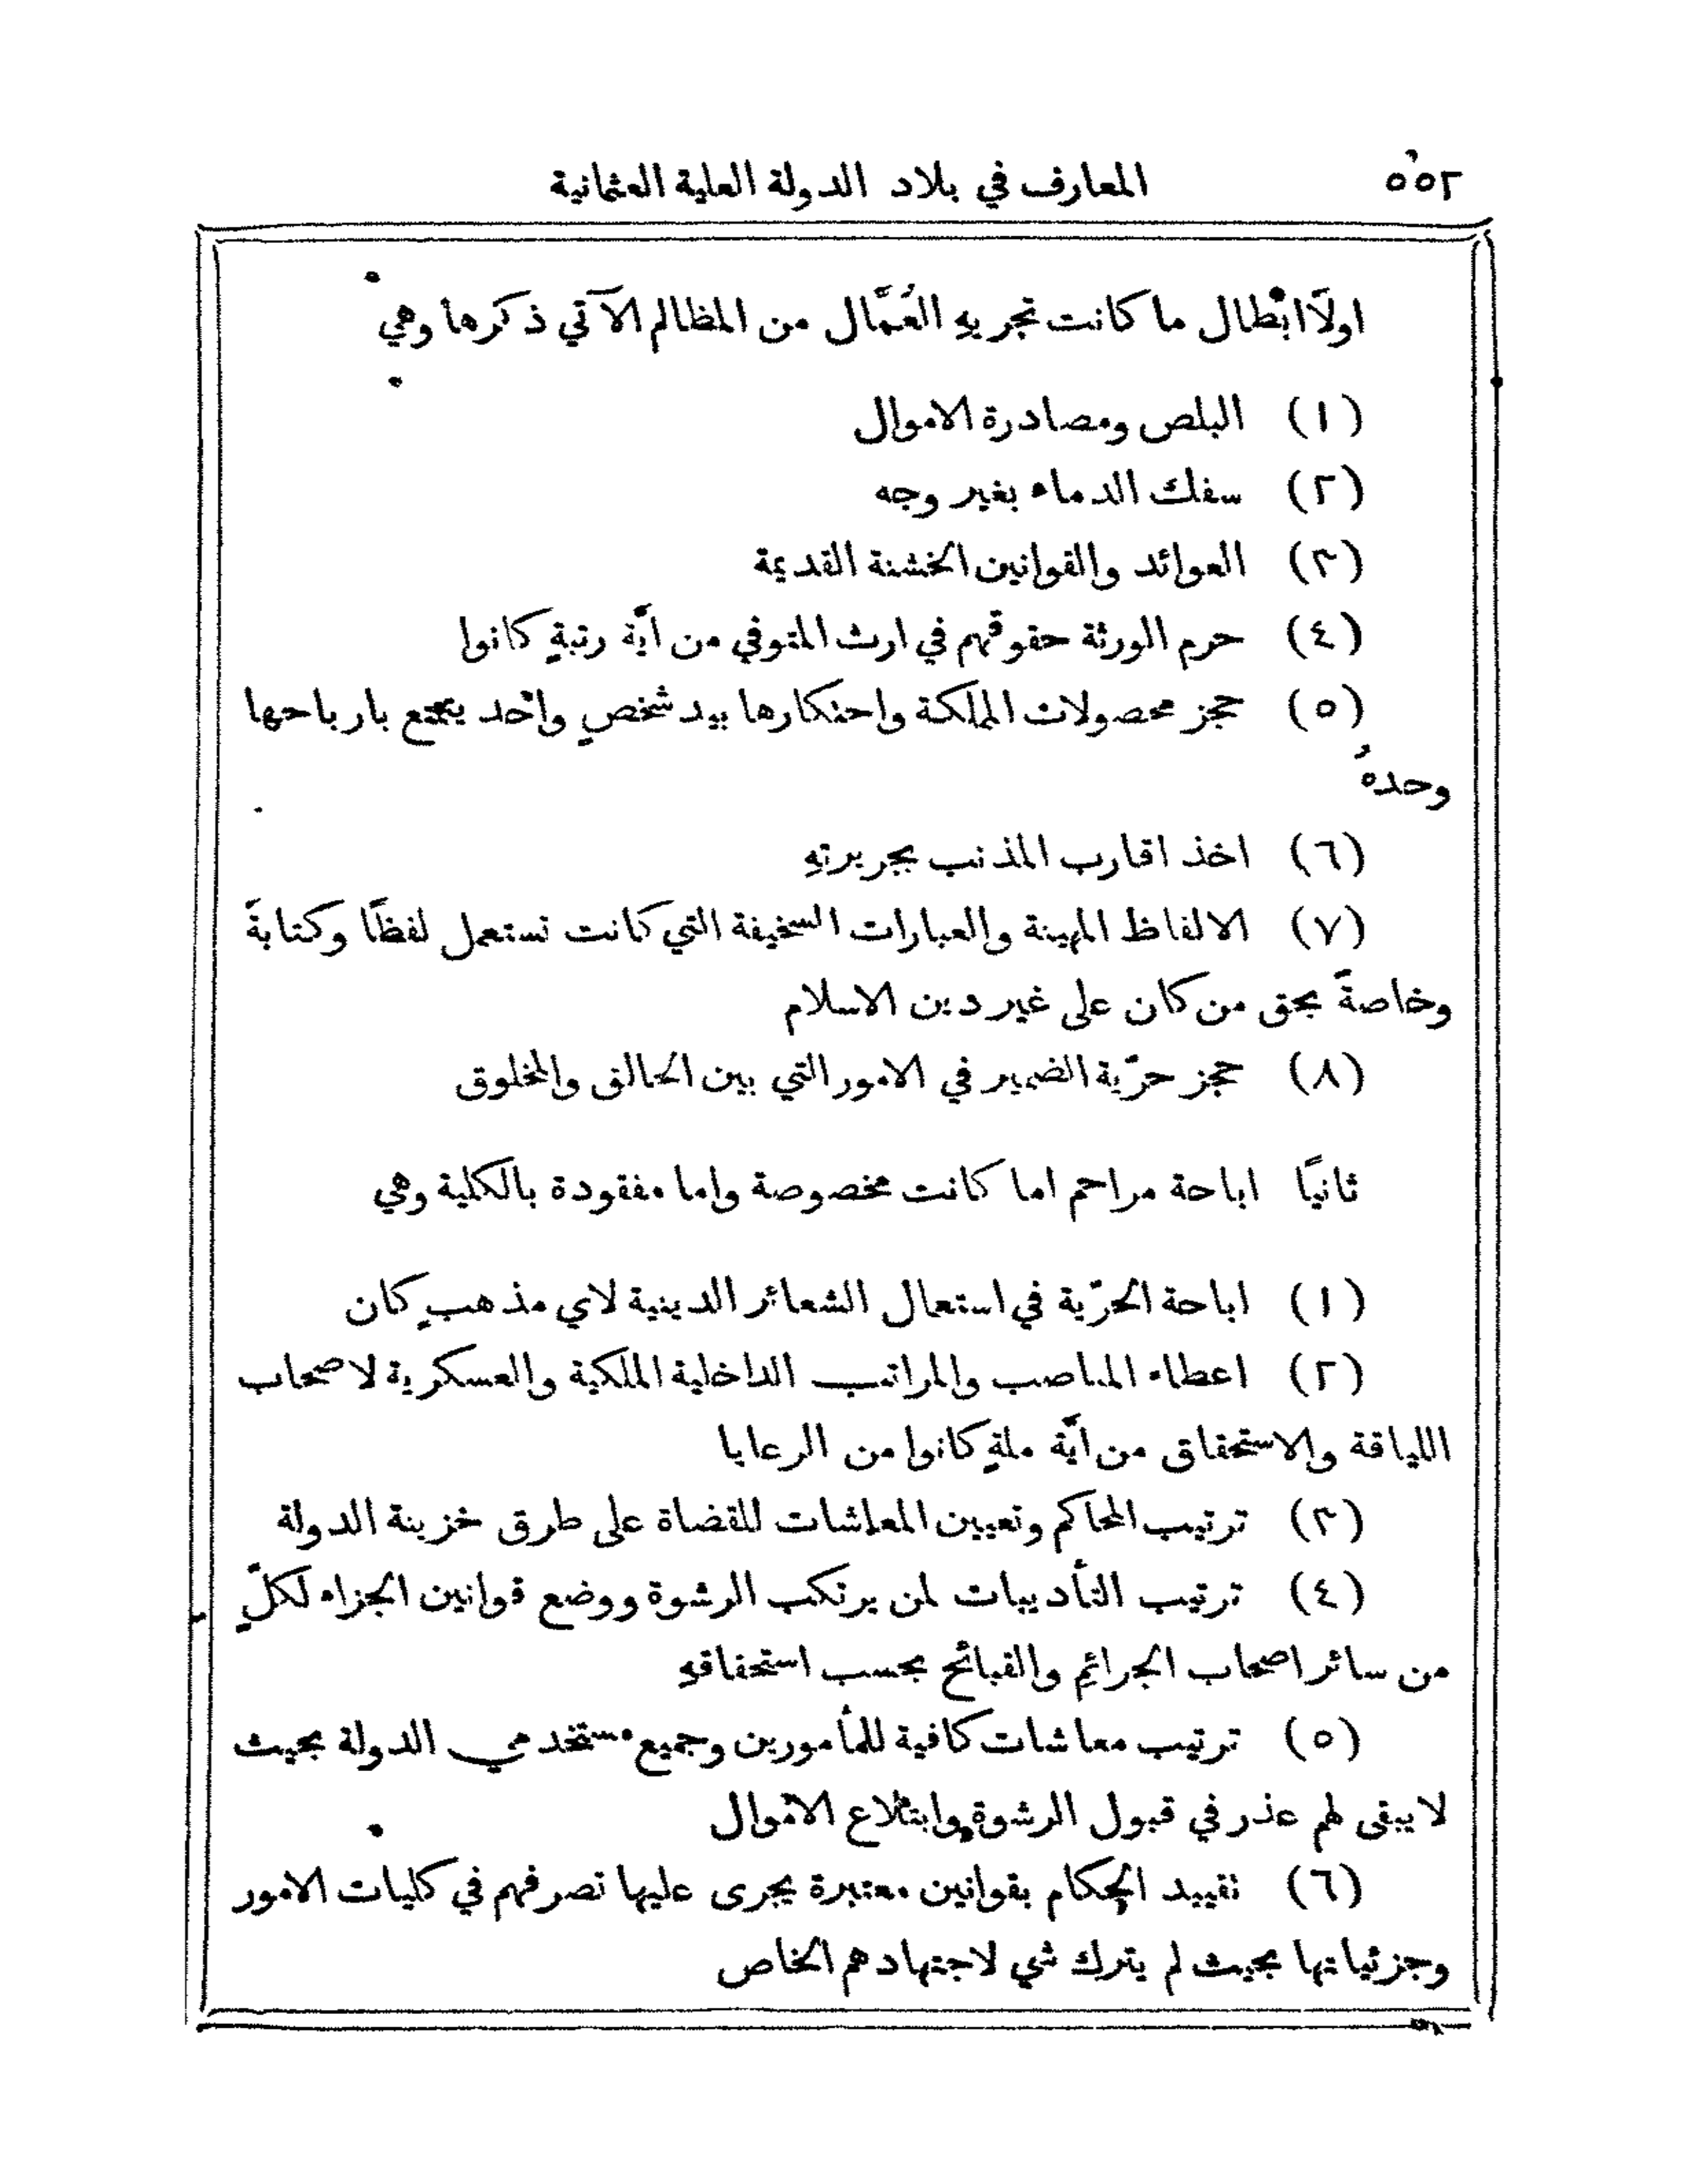 ٥٥٢ المعارف في بلاد الدولة العلية العثمانية
اولًا ابطال ما كانت تجريهِ العُمَّال من المظالم الآتي ذكرها وهي
(١) البلص ومصادرة الاموال
(٢) سفك الدماء بغير وجه
(٣) العوائد والقوانين الخشنة القديمة
(٤) حرم الورثة حقوقهم في ارث المتوفي من ايَّة رتبةٍ كانوا
(٥) حجز محصولات المملكة واحتكارها بيد شخصٍ واحد يتمتع بارباحها
وحدهُ
(٦) اخذ اقارب المذنب بجريرتهِ
(٧) الالفاظ المهينة والعبارات السخيفة التي كانت تستعمل لفظًا وكتابةً
وخاصةً بحق من كان على غير دين الاسلام
(٨) حجز حرّية الضمير في الامور التي بين الخالق والمخلوق
ثانيًا اباحة مراحم اما كانت مخصوصة واما مفقودة بالكلية وهي
(١) اباحة الحرّية في استعمال الشعائر الدينية لاي مذهبٍ كان
(٢) اعطاء المناصب والمراتب الداخلية الملكية والعسكرية لاصحاب
اللياقة والاستحقاق من ايَّة ملةٍ كانوا من الرعايا
(٣) ترتيب المحاكم وتعيين المعاشات للقضاة على طرق خزينة الدولة
(٤) ترتيب التأديبات لمن يرتكب الرشوة ووضع قوانين الجزاء لكلٍّ
من سائر اصحاب الجرائم والقبائح بحسب استحقاقهِ
(٥) ترتيب معاشات كافية للمأمورين وجميع مستخدمي الدولة بحيث
لا يبقى لهم عذر في قبول الرشوة وابتلاع الاموال
(٦) تقييد الحكام بقوانين معتبرة يجرى عليها تصرفهم في كليات الامور
وجزئياتها بحيث لم يترك شي لاجتهادهم الخاص